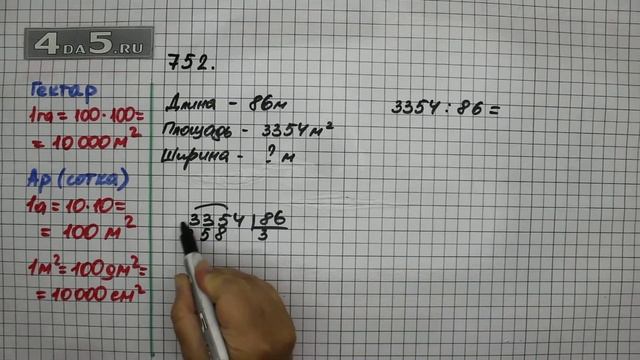 4DA5.RU
752.
Гектар
1га = 100·100 =
= 10 000 м²
Ар (сотка)
1а = 10·10 =
= 100 м²
1м² = 100дм² =
= 10000 см²
Длина - 86м
Площадь - 3354м²
Ширина - ? м
3354 : 86 =
3354 | 86
58 3